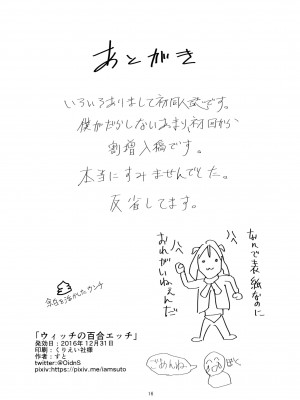 あとがき
いろいろありまして初同人誌です。
僕がだらしないあまり、初回から
割増入稿です。
本当にすみませんでした。
反省してます。
なんで表紙なのに
おれがいねぇんだ
余白を活かしたウンチ
ごめんね
ぼく
「ウィッチの百合エッチ」
発効日：2016年12月31日
印刷：くりえい社様
作者：すと
twitter:@OidnS
pixiv:https://pixiv.me/iamsuto
16